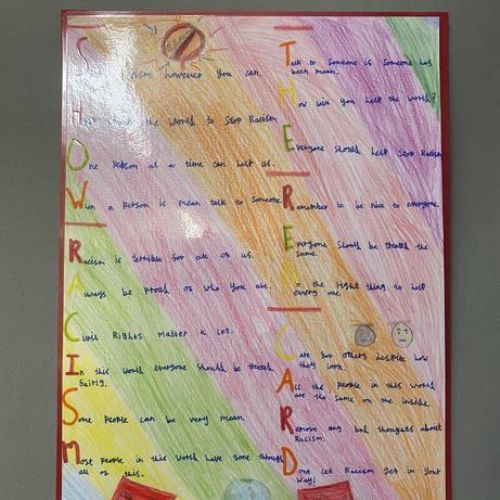 Stop Racism however you can.
Help the World to Stop Racism
One Person at a time can help us.
Wen a Person is mean talk to someone
Racism is terrible for all of us.
Always be proud of who you are.
Civil Rights matter a lot.
In this world everyone should be treated
fairly.
Some People can be very mean.
Most People in this world have gone through
all of this.
Talk to someone is someone has
been mean.
How will you help the world?
Everyone should help stop Racism
Remember to be nice to everyone
Everyone should be treated the
same.
the right thing to help
every one.
Care for others despite how
they look.
All the people in this world
are the same on the inside.
Remove any bad thoughts about
Racism.
Dont let Racism get in your
Way!